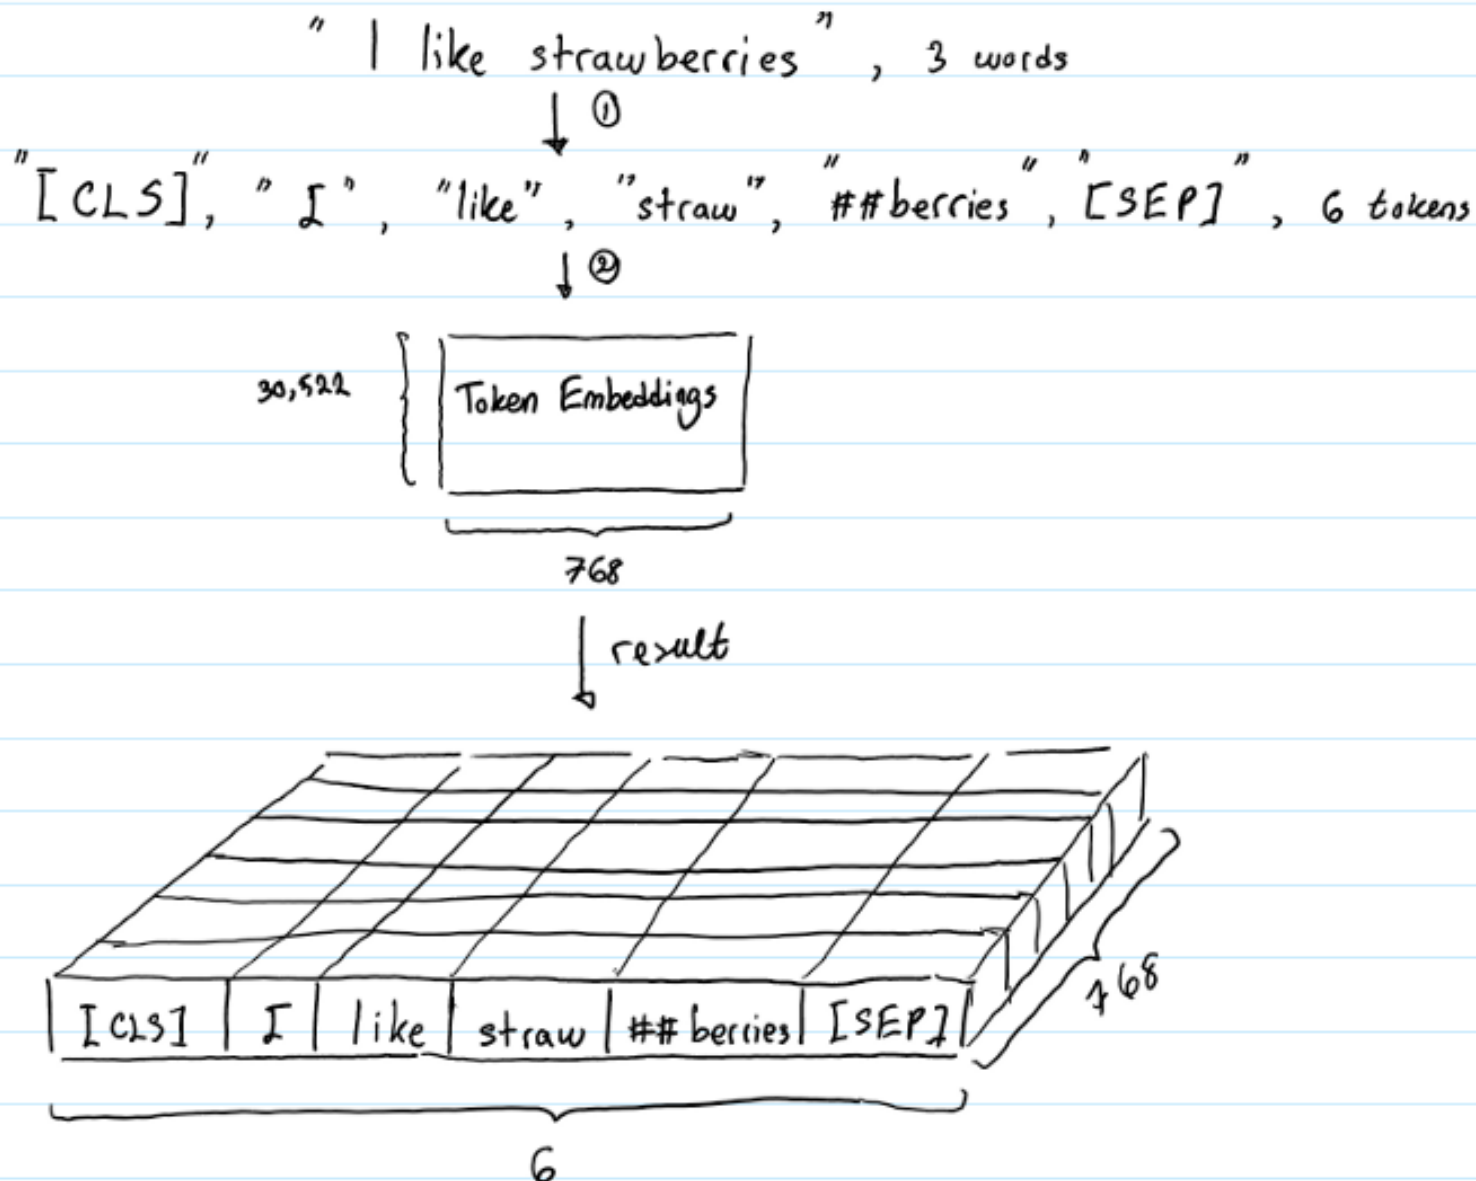 "I like strawberries", 3 words
①
"[CLS]", "I", "like", "straw", "##berries", "[SEP]", 6 tokens
②
30,522
Token Embeddings
768
result
768
[CLS] I like straw ##berries [SEP]
6